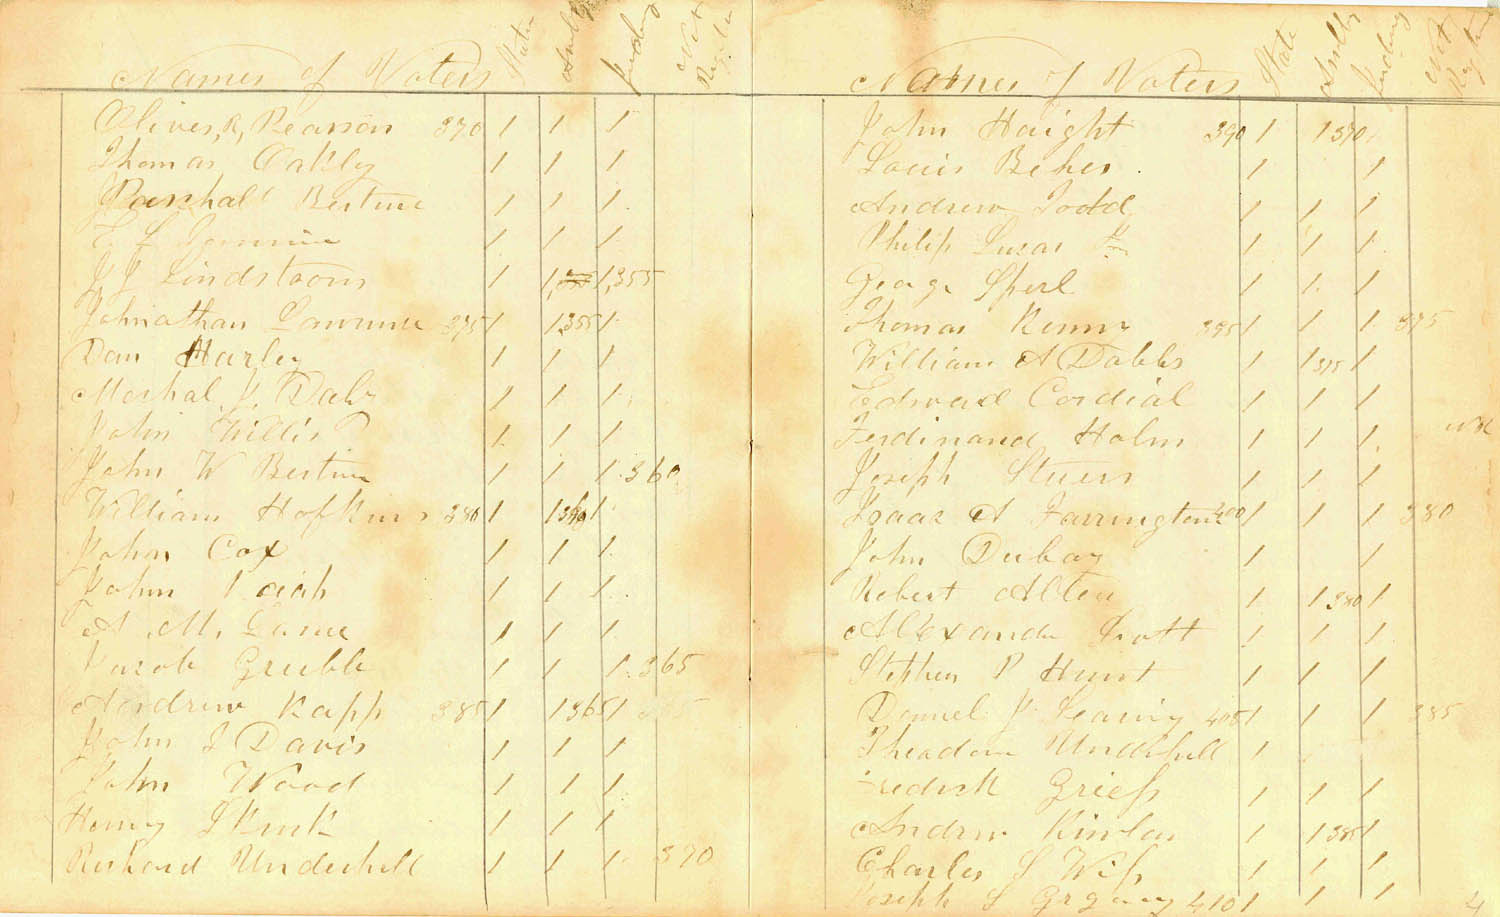 Names of Voters State Assbly Judiary Not Regstr
Oliver, R, Pearson 370 1 1 1
Thomas Oakly 1 1 1
Paschal Bertine 1 1 1
E L 1 1 1
J J Lindstroom 1 1, 1,355
Johnathan Lawrence 375 1 1 355 1
Dan Harley 1 1 1
Marshal J. Daby 1 1 1
John Willis 1 1 1
John W Bertine 1 1 1 360
William Hofkins 380 1 1 360 1
John Cox 1 1 1
John 1 1 1
A. M. Lame 1 1 1
Jacob Gruble 1 1 1 365
Andrew Kapp 385 1 1 365 1
John J Davis 1 1 1
John Wood 1 1 1
Henry 1 1 1
Richard Underhill 1 1 1 370
Names of Voters State Assbly Judiary Not Regstr
John Haight 390 1 1 370 1
Louis Beher 1 1
Andrew Todd 1 1 1
Philip Luzar 1 1 1
George Sperl 1 1 1
Thomas Kenny 395 1 1 1 375
William A Dobbs 1 1 375 1
Edward Cordial 1 1 1
Ferdinand Holm 1 1 1
Joseph Stuers 1 1 1
Isaac A Farrington 400 1 1 1 380
John Dubay 1 1
Robert Allen 1 1 380 1
Alexander Scott 1 1 1
Stephen P Hunt 1 1 1
Daniel J Leaviy 405 1 1 1 385
Theadore Underhill 1 1
Fredirk Griefs 1 1 1
Andrew Kinlan 1 1 385 1
Charles S Wifs 1 1 1
Joseph S Grgory 410 1 1 1 4